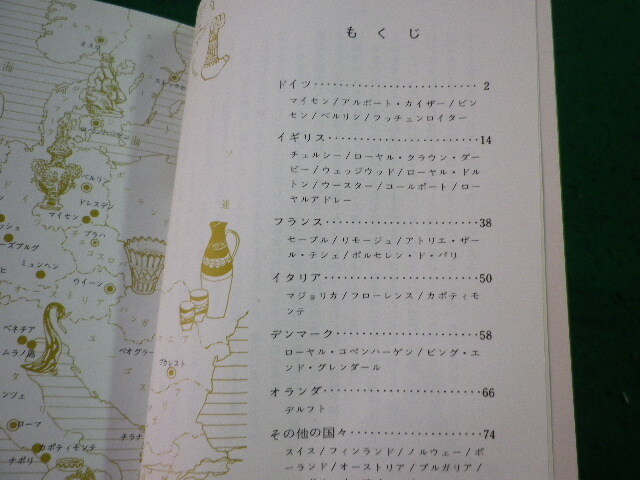 もくじ
ドイツ……………………… 2
マイセン/アルボート・カイザー/ビン
セン/ベルリン/フッチェンロイター
イギリス………………………14
チェルシー/ローヤル・クラウン・ダー
ビー/ウェッジウッド/ローヤル・ドル
トン/ウースター/コールポート/ロー
ヤルアドレー
フランス………………………38
セーブル/リモージュ/アトリエ・ザー
ル・テシェ/ポルセレン・ド・パリ
イタリア………………………50
マジョリカ/フローレンス/カポティモ
ンテ
デンマーク……………………58
ローヤル・コペンハーゲン/ビング・エ
ンド・グレンダール
オランダ………………………66
デルフト
その他の国々…………………74
スイス/フィンランド/ノルウェー/ポ
ーランド/オーストリア/ブルガリア/
ベルリン
ドレスデン
マイセン
プラハ
ミュンヘン
ウィーン
ベネチア
ムラノ島
ローマ
カポティモンテ
ナポリ
ブカレスト
連
海